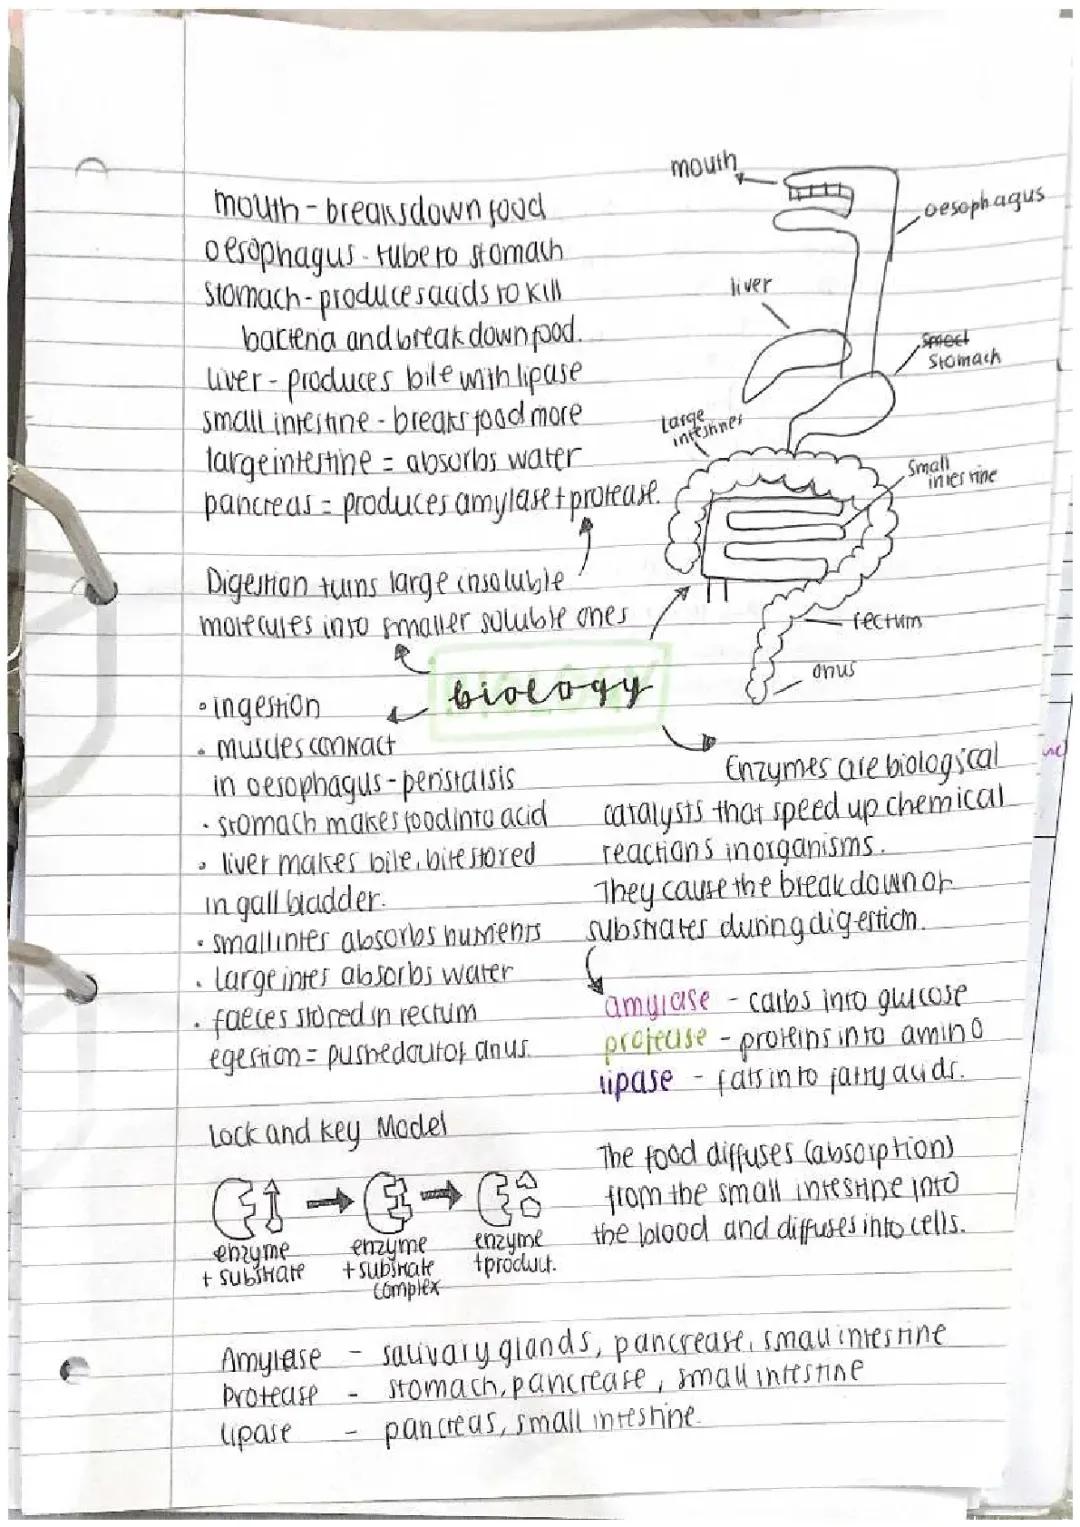 mouth
oesophagus
liver
Stomach
Large
intestines
Small
intestine
rectum
anus
mouth - breaks down food
oesophagus - tube to stomach
Stomach - produces acids to kill
bacteria and break down food.
Liver - produces bile with lipase
small intestine - breaks food more
large intestine = absorbs water
pancreas = produces amylase + protease.
Digestion turns large insoluble
molecules into smaller soluble ones
biology
• ingestion
• muscles contract
in oesophagus - peristalsis
• stomach makes food into acid
• liver makes bile, bile stored
in gall bladder.
• small intes absorbs nutrients
• large intes absorbs water
• faeces stored in rectum
egestion = pushed out of anus.
Enzymes are biological
catalysts that speed up chemical
reactions in organisms.
They cause the breakdown of
substrates during digestion.
amylase - carbs into glucose
protease - proteins into amino
lipase - fats into fatty acids.
Lock and key Model
enzyme
+ substrate
enzyme
+ substrate
complex
enzyme
+ product.
The food diffuses (absorption)
from the small intestine into
the blood and diffuses into cells.
Amylase - salivary glands, pancrease, small intestine
Protease - stomach, pancrease, small intestine
Lipase - pancreas, small intestine.